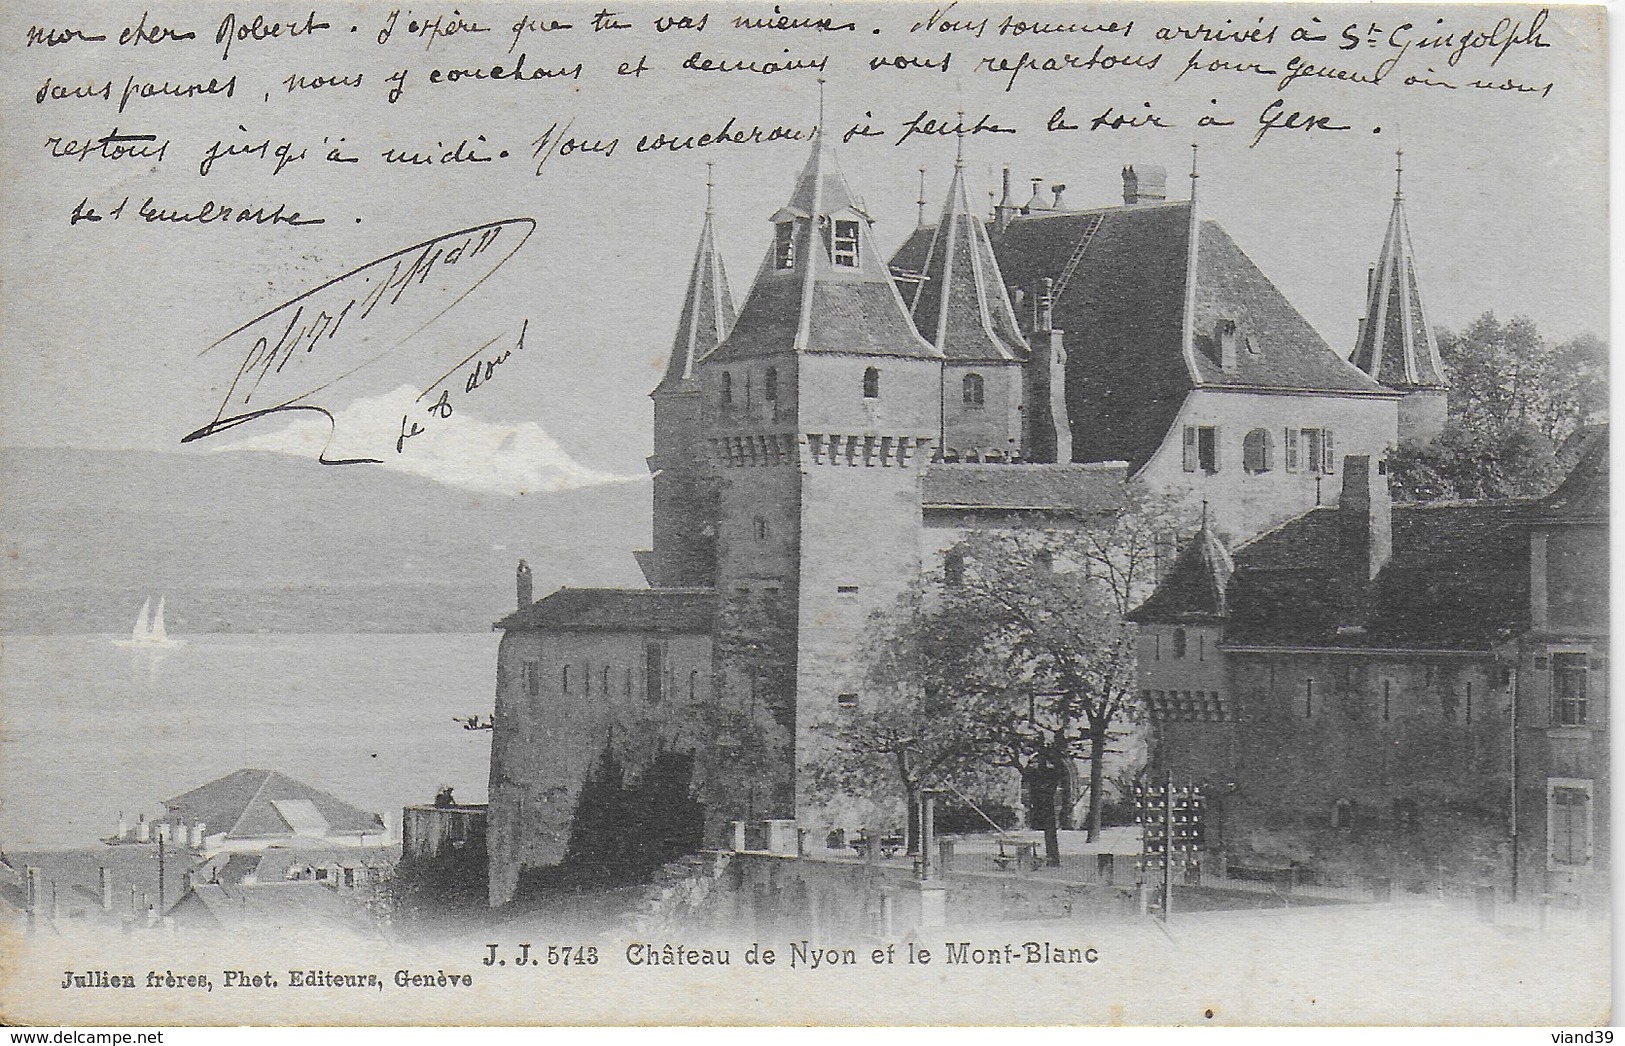 mon cher Robert. J'espère que tu vas mieux. Nous sommes arrivés à St Gingolph
sans pannes, nous y couchons et demains nous repartons pour Geneve où nous
restons jusqu'à midi. Nous coucherons si peute le soir à Gex.
Je t'embrasse.
le 8 aout
J. J. 5743 Château de Nyon et le Mont-Blanc
Jullien frères, Phot. Editeurs, Genève
viand39